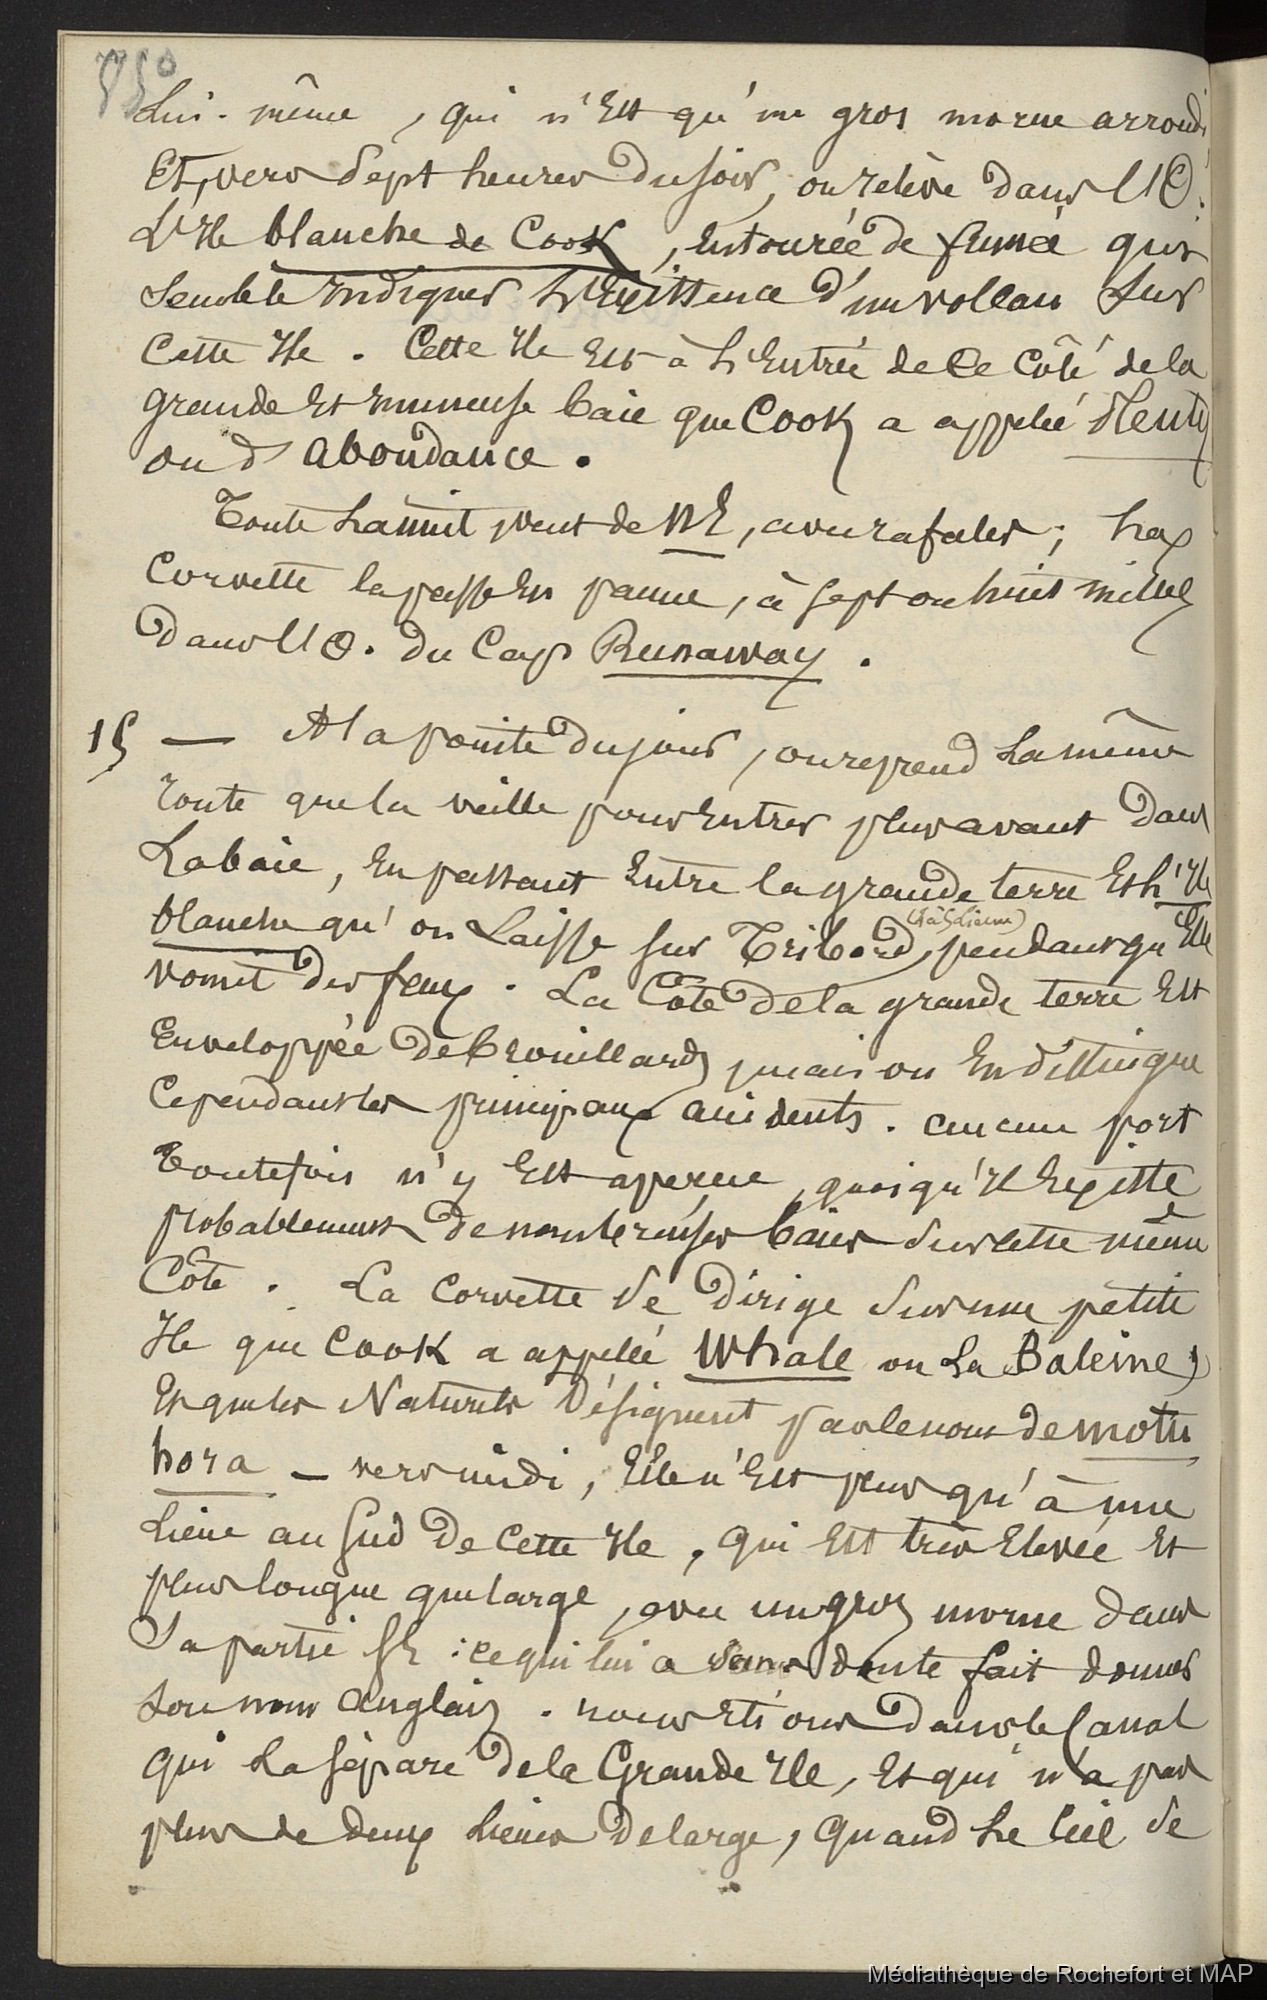 lui-même, qui n'Est qu'un gros morne arrondi
Et, vers sept heures du soir, on relève dans l'1O.
L'Ile blanche de Cook, Entourée de fumée qui
semble Indiquer l'Existence d'un volcan sur
cette Ile. Cette Ile Est à l'Entrée de ce côté de la
grande Et Immense baie que Cook a appelé Plenty
ou d'abondance.
Toute la nuit, vent de NE, avec rafales; la
corvette la passe En panne, à sept ou huit milles
dans l'1O. du Cap Runaway.
15 — A la pointe du jour, on reprend la même
route que la veille pour Entrer plus avant dans
La baie, En passant Entre la grande terre Et l'Ile
blanche qu'on Laisse sur Tribord, pendant qu'Elle
vomit des feux. La Côte de la grande terre Est
Enveloppée de brouillards, mais on En distingue
cependant les principaux accidents. aucun port
Toutefois n'y Est aperçu, quoiqu'Il Existe
probablement de nombreuses baies sur cette même
Côte. La corvette se dirige sur une petite
Ile que Cook a appelé Whale ou La Baleine,
Et que les Naturels désignent par le nom de motu
hora — vers midi, Elle n'Est plus qu'à une
Lieue au Sud de cette Ile, qui Est très Elevée Et
plus longue que large, avec un gros morne dans
Sa partie SE : ce qui lui a sans doute fait donner
son nom anglais. nous Etions dans le Canal
qui La sépare de la Grande Ile, Et qui n'a pas
plus de deux Lieues de large, quand le Ciel se
Médiathèque de Rochefort et MAP